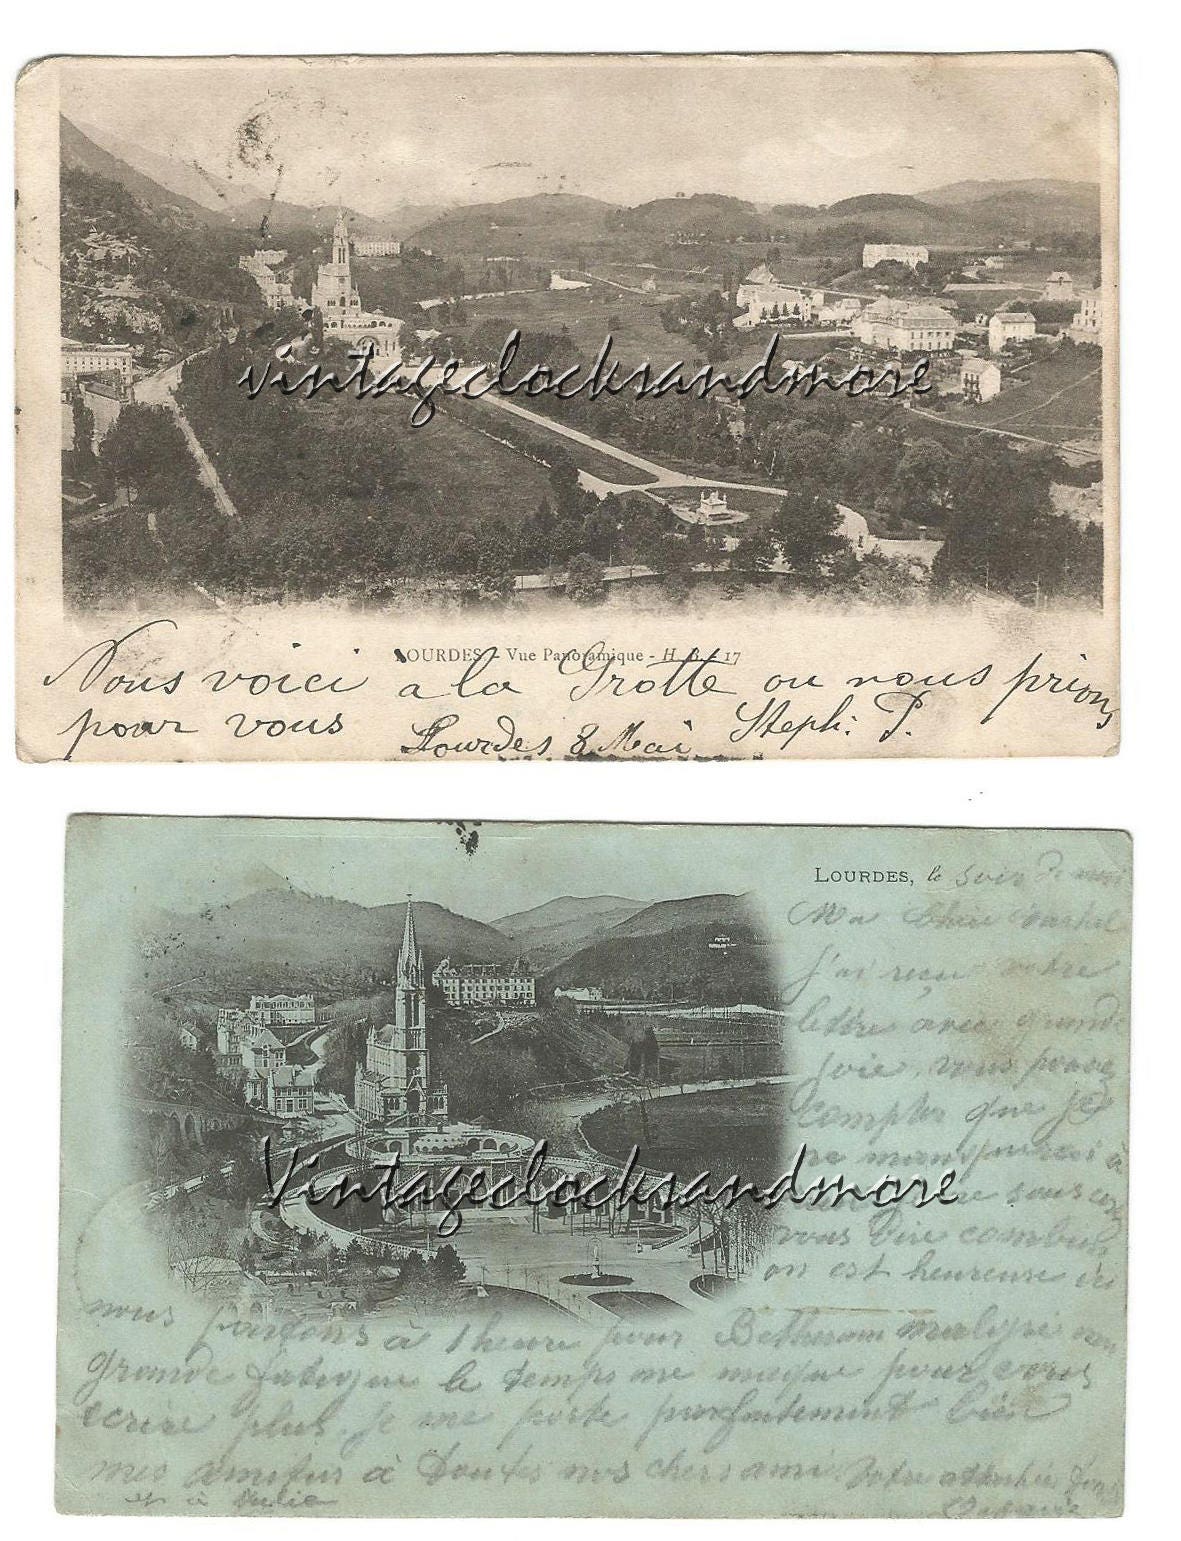 vintageclocksandmore
LOURDES - Vue Panoramique - H. B. 17
Nous voici a la Grotte ou nous prions
pour vous Lourdes 8 Mai Steph: P.
LOURDES, le soir
Ma Chère
J'ai reçu votre
lettre avec grande
joie, vous pouvez
compter que je
ne manquerai à
sous
vous dire combien
on est heureuse ici
Vintageclocksandmore
nous partons à 1 heure pour Betharam malgré
grande fatigue le temps me manque pour vous
écrire plus. Je me porte parfaitement bien
mes amitiés à toutes nos chers amis Votre attachée
et à Julie